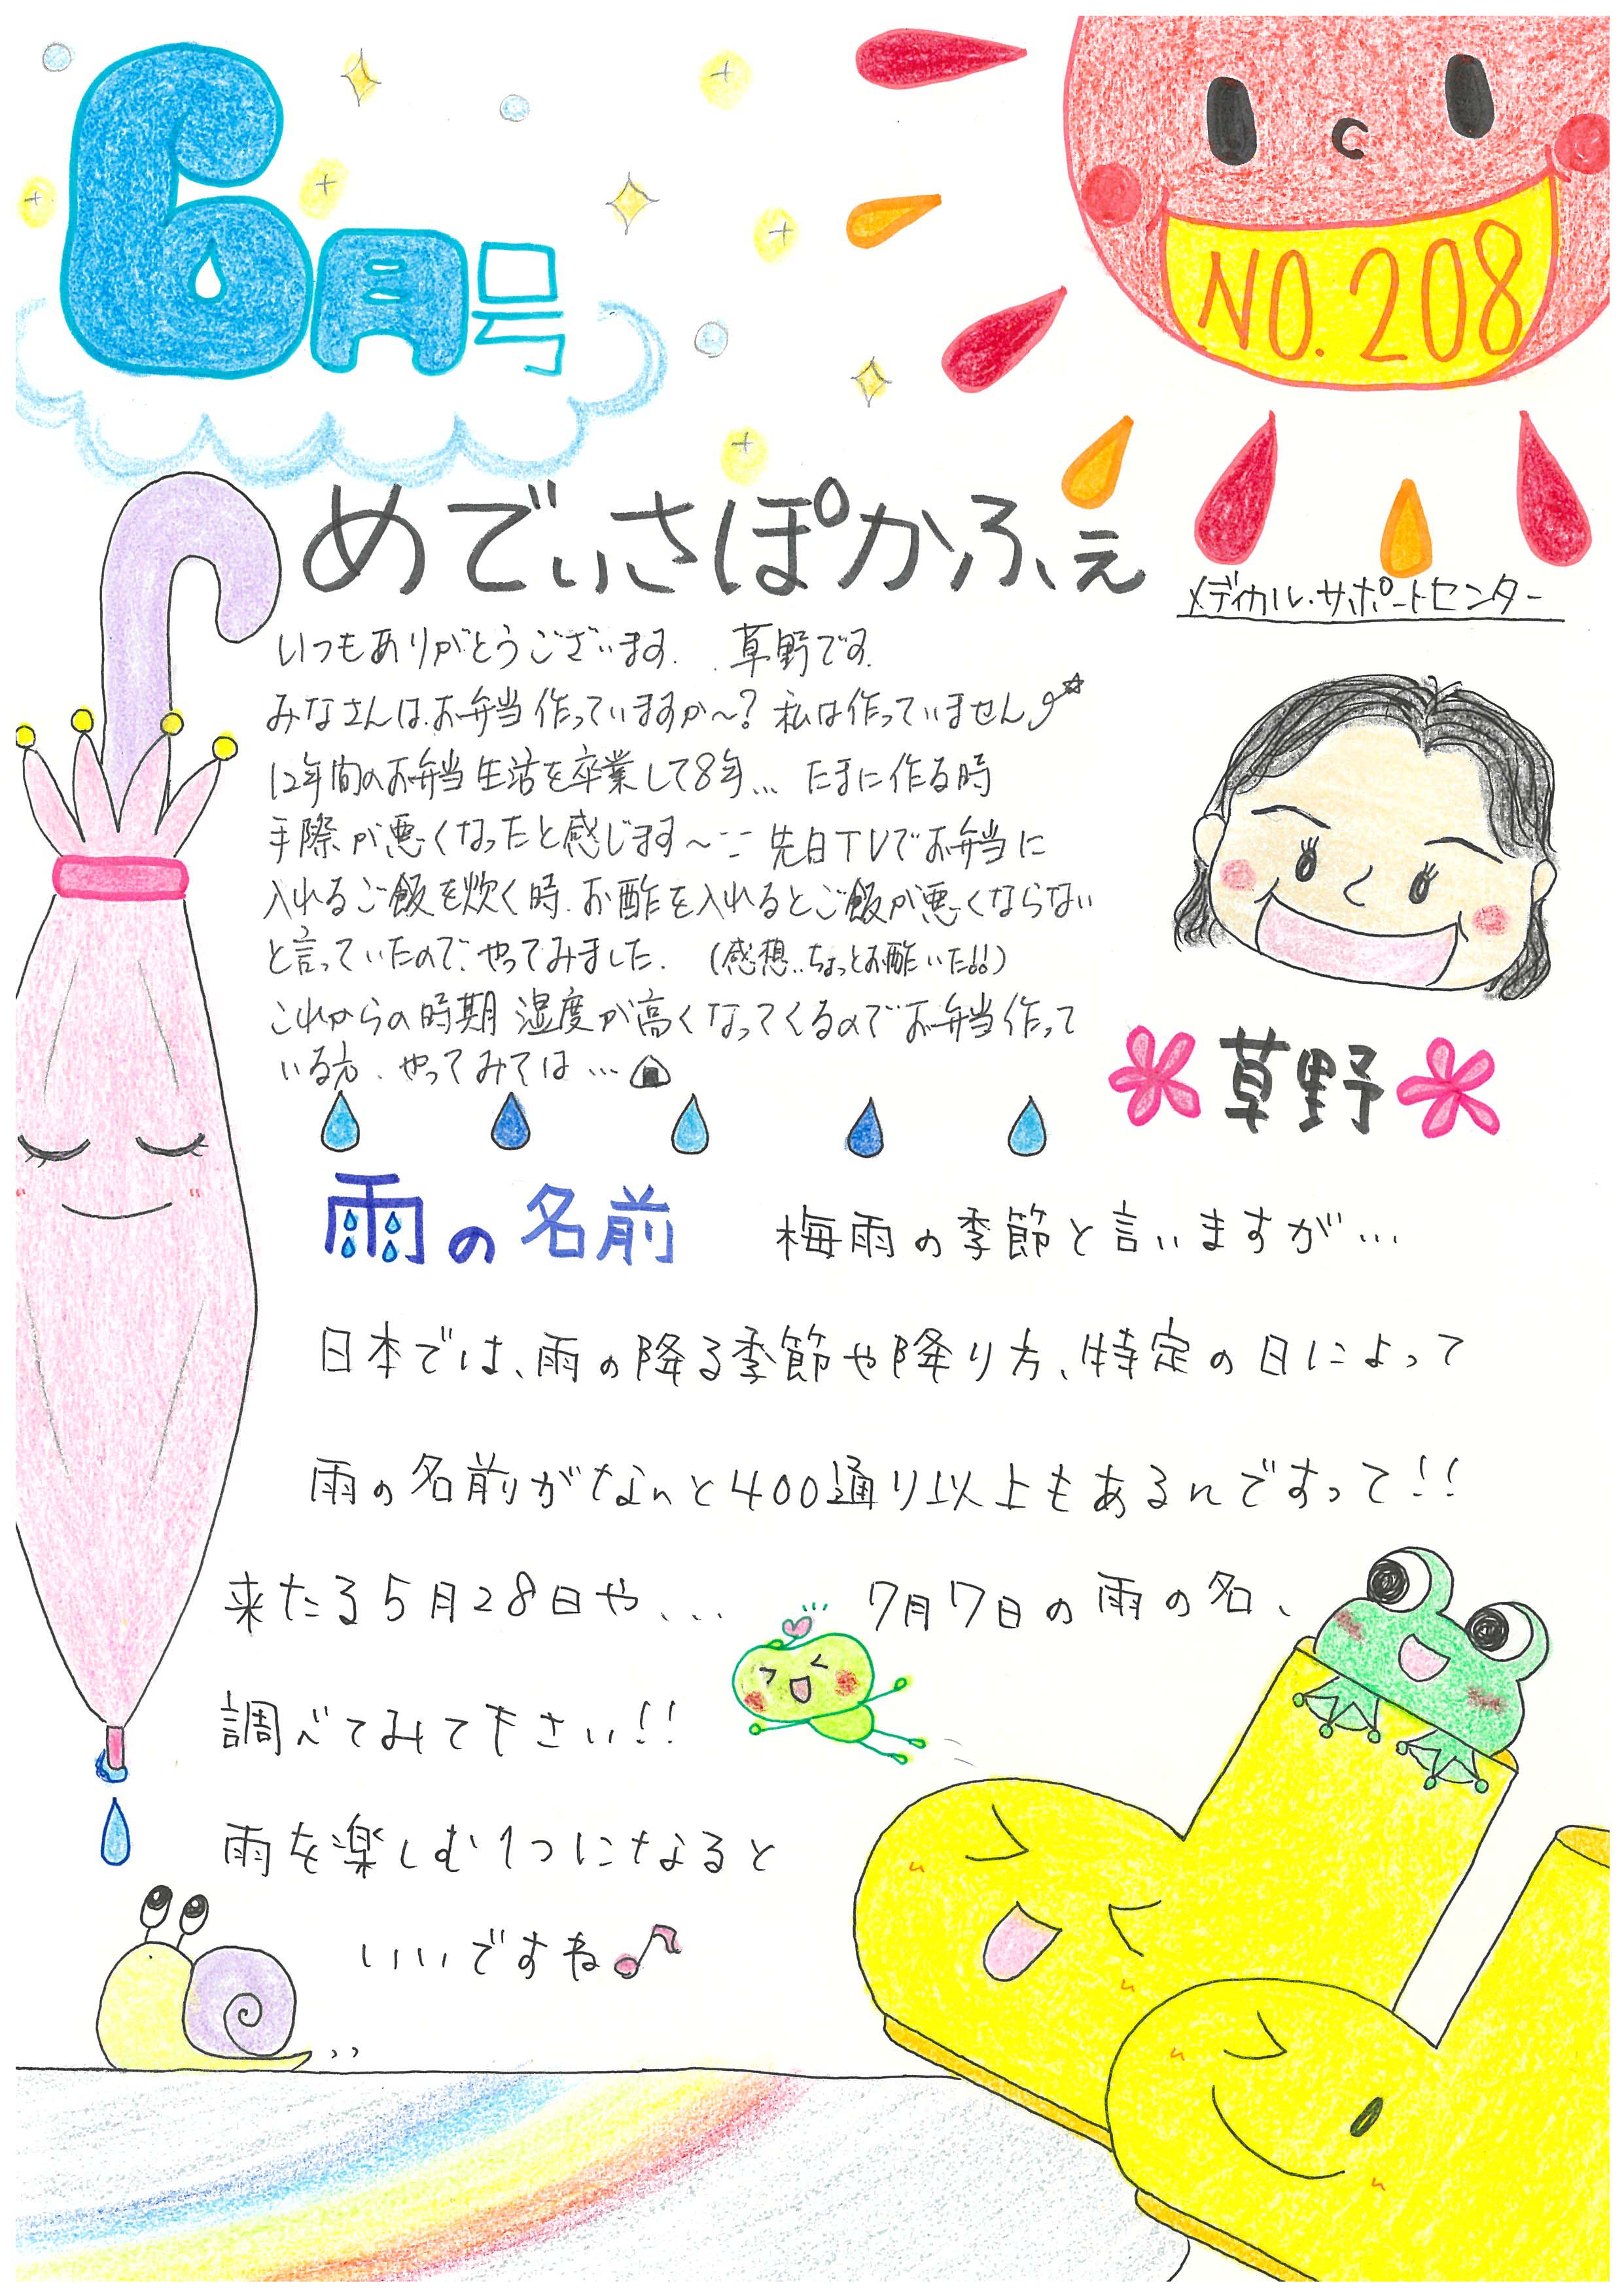 6月号
NO.208
めでぃさぽかふぇ
メディカル・サポートセンター
いつもありがとうございます. 草野です.
みなさんは、お弁当作っていますか〜? 私は作っていません
12年間のお弁当生活を卒業して8年... たまに作る時
手際が悪くなったと感じます〜 先日TVでお弁当に
入れるご飯を炊く時、お酢を入れるとご飯が悪くならない
と言っていたので、やってみました. (感想..ちょっとお酢いた!!)
これからの時期 湿度が高くなってくるのでお弁当作って
いる方、やってみては…
草野
雨の名前 梅雨の季節と言いますが…
日本では、雨の降る季節や降り方、特定の日によって
雨の名前がなんと400通り以上もあるんですって!!
来たる5月28日や、... 7月7日の雨の名、
調べてみて下さい!!
雨を楽しむ1つになると
いいですね♪